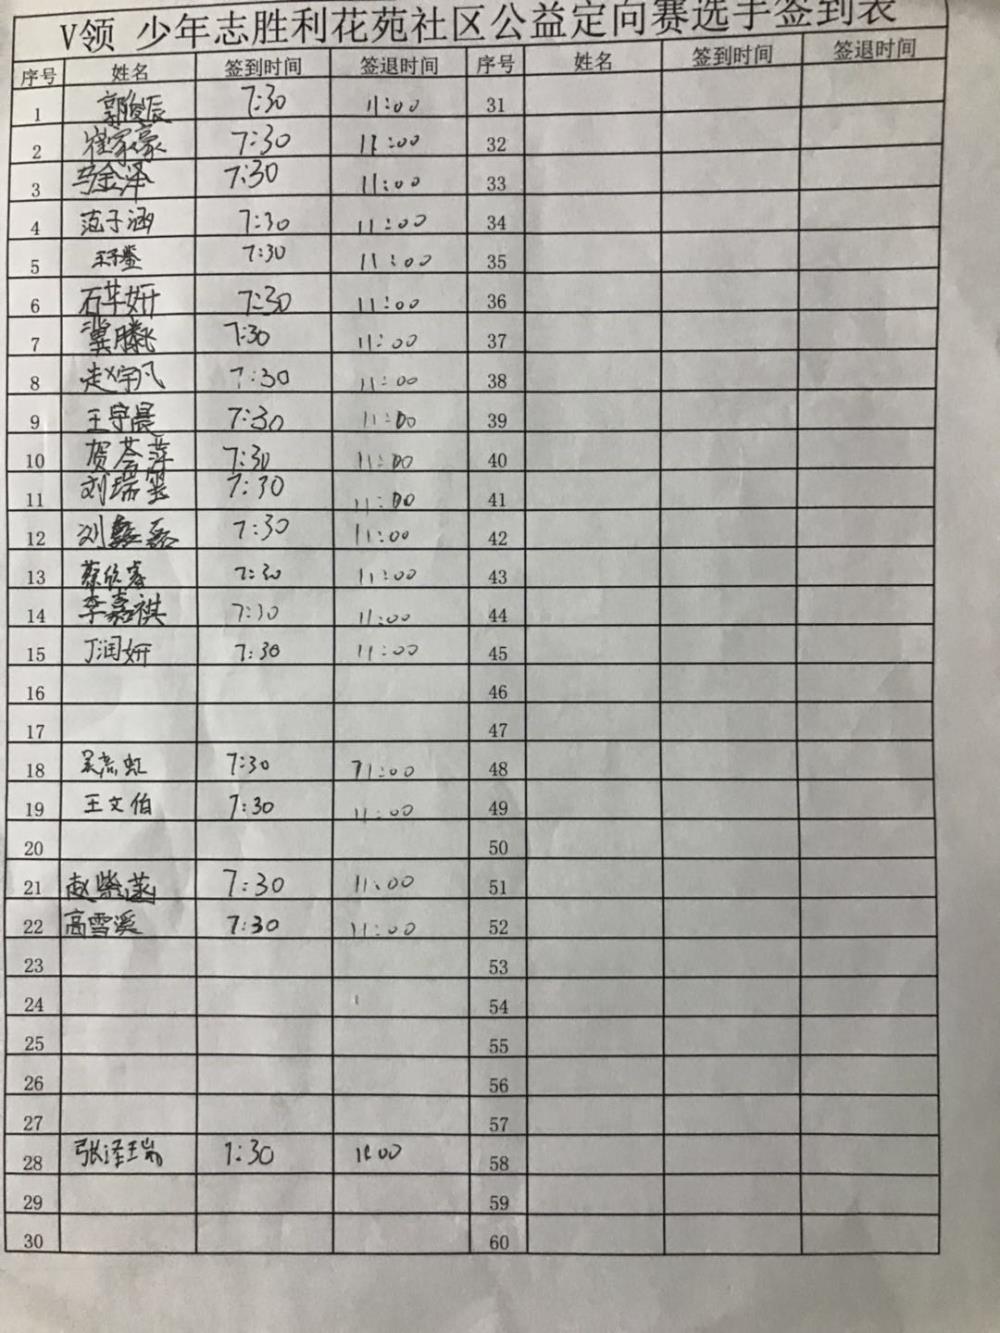 V领 少年志胜利花苑社区公益定向赛选手签到表
序号 姓名 签到时间 签退时间 序号 姓名 签到时间 签退时间
1 郭俊辰 7:30 11:00 31
2 崔家豪 7:30 11:00 32
3 马金泽 7:30 11:00 33
4 范子涵 7:30 11:00 34
5 7:30 11:00 35
6 石芊妍 7:30 11:00 36
7 冀腾飞 7:30 11:00 37
8 赵宇凡 7:30 11:00 38
9 王宇晨 7:30 11:00 39
10 贺荟萍 7:30 11:00 40
11 刘瑞 7:30 11:00 41
12 刘鑫磊 7:30 11:00 42
13 蔡欣睿 7:30 11:00 43
14 李嘉祺 7:30 11:00 44
15 丁润妍 7:30 11:00 45
16 46
17 47
18 吴彦虹 7:30 11:00 48
19 王文伯 7:30 11:00 49
20 50
21 赵紫涵 7:30 11:00 51
22 高雪溪 7:30 11:00 52
23 53
24 54
25 55
26 56
27 57
28 张泽瑞 7:30 11:00 58
29 59
30 60